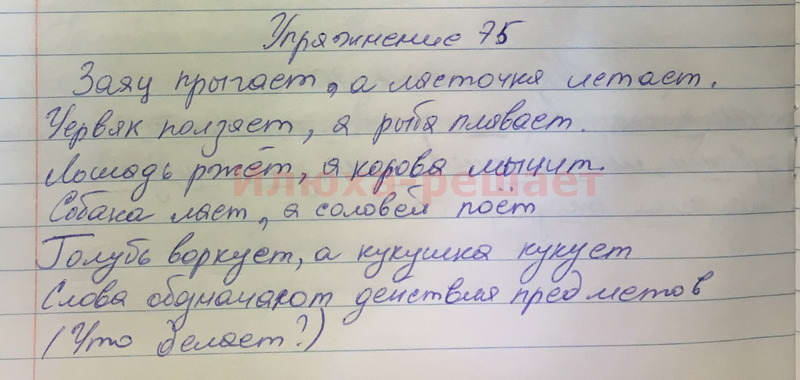 Упражнение 75
Заяц прыгает, а ласточка летает.
Червяк ползает, а рыба плавает.
Лошадь ржёт, а корова мычит.
илюха-решает
Собака лает, а соловей поёт
Голубь воркует, а кукушка кукует
Слова обозначают действия предметов
(Что делает?)